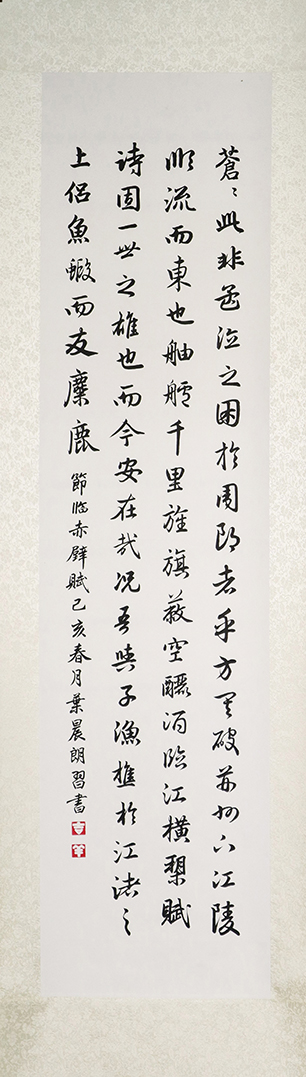 蒼〻此非孟德之困於周郎者乎方其破荊州下江陵
順流而東也舳艫千里旌旗蔽空釃酒臨江橫槊賦
詩固一世之雄也而今安在哉況吾與子漁樵於江渚之
上侶魚蝦而友麋鹿 節臨赤壁賦己亥春月葉晨朗習書